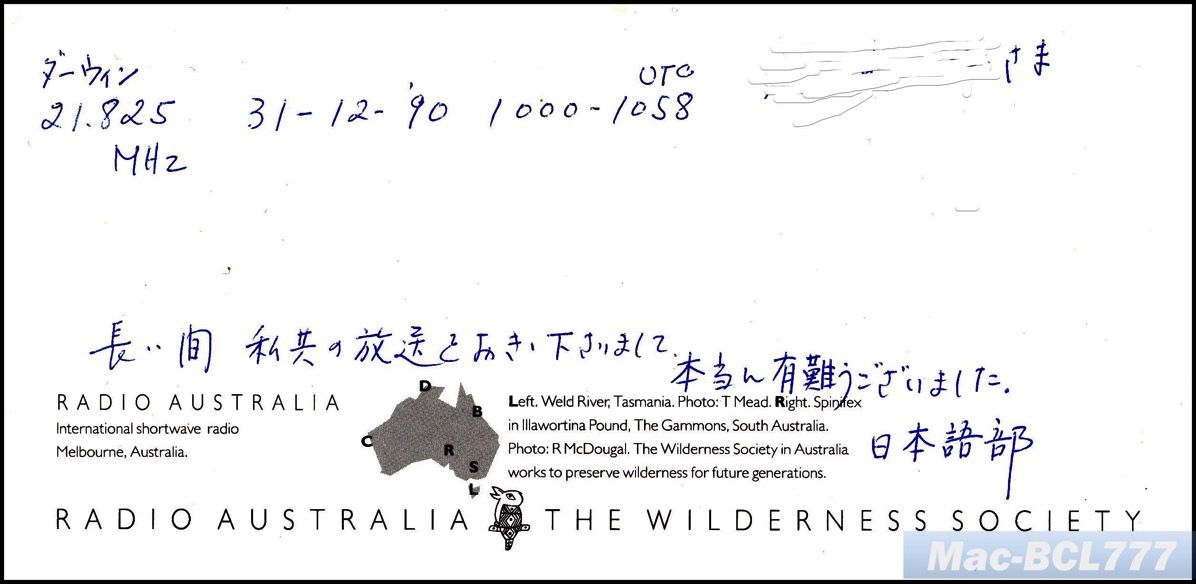 ダーウィン
UTC
さま
21.825 31-12-'90 1000-1058
MHz
長い間 私共の放送をおきゝ下さいまして、
本当に有難うございました。
日本語部
RADIO AUSTRALIA
International shortwave radio
Melbourne, Australia.
D
B
C
R
S
L
Left. Weld River, Tasmania. Photo: T Mead. Right. Spinifex
in Illawortina Pound, The Gammons, South Australia.
Photo: R McDougal. The Wilderness Society in Australia
works to preserve wilderness for future generations.
RADIO AUSTRALIA THE WILDERNESS SOCIETY
Mac-BCL777